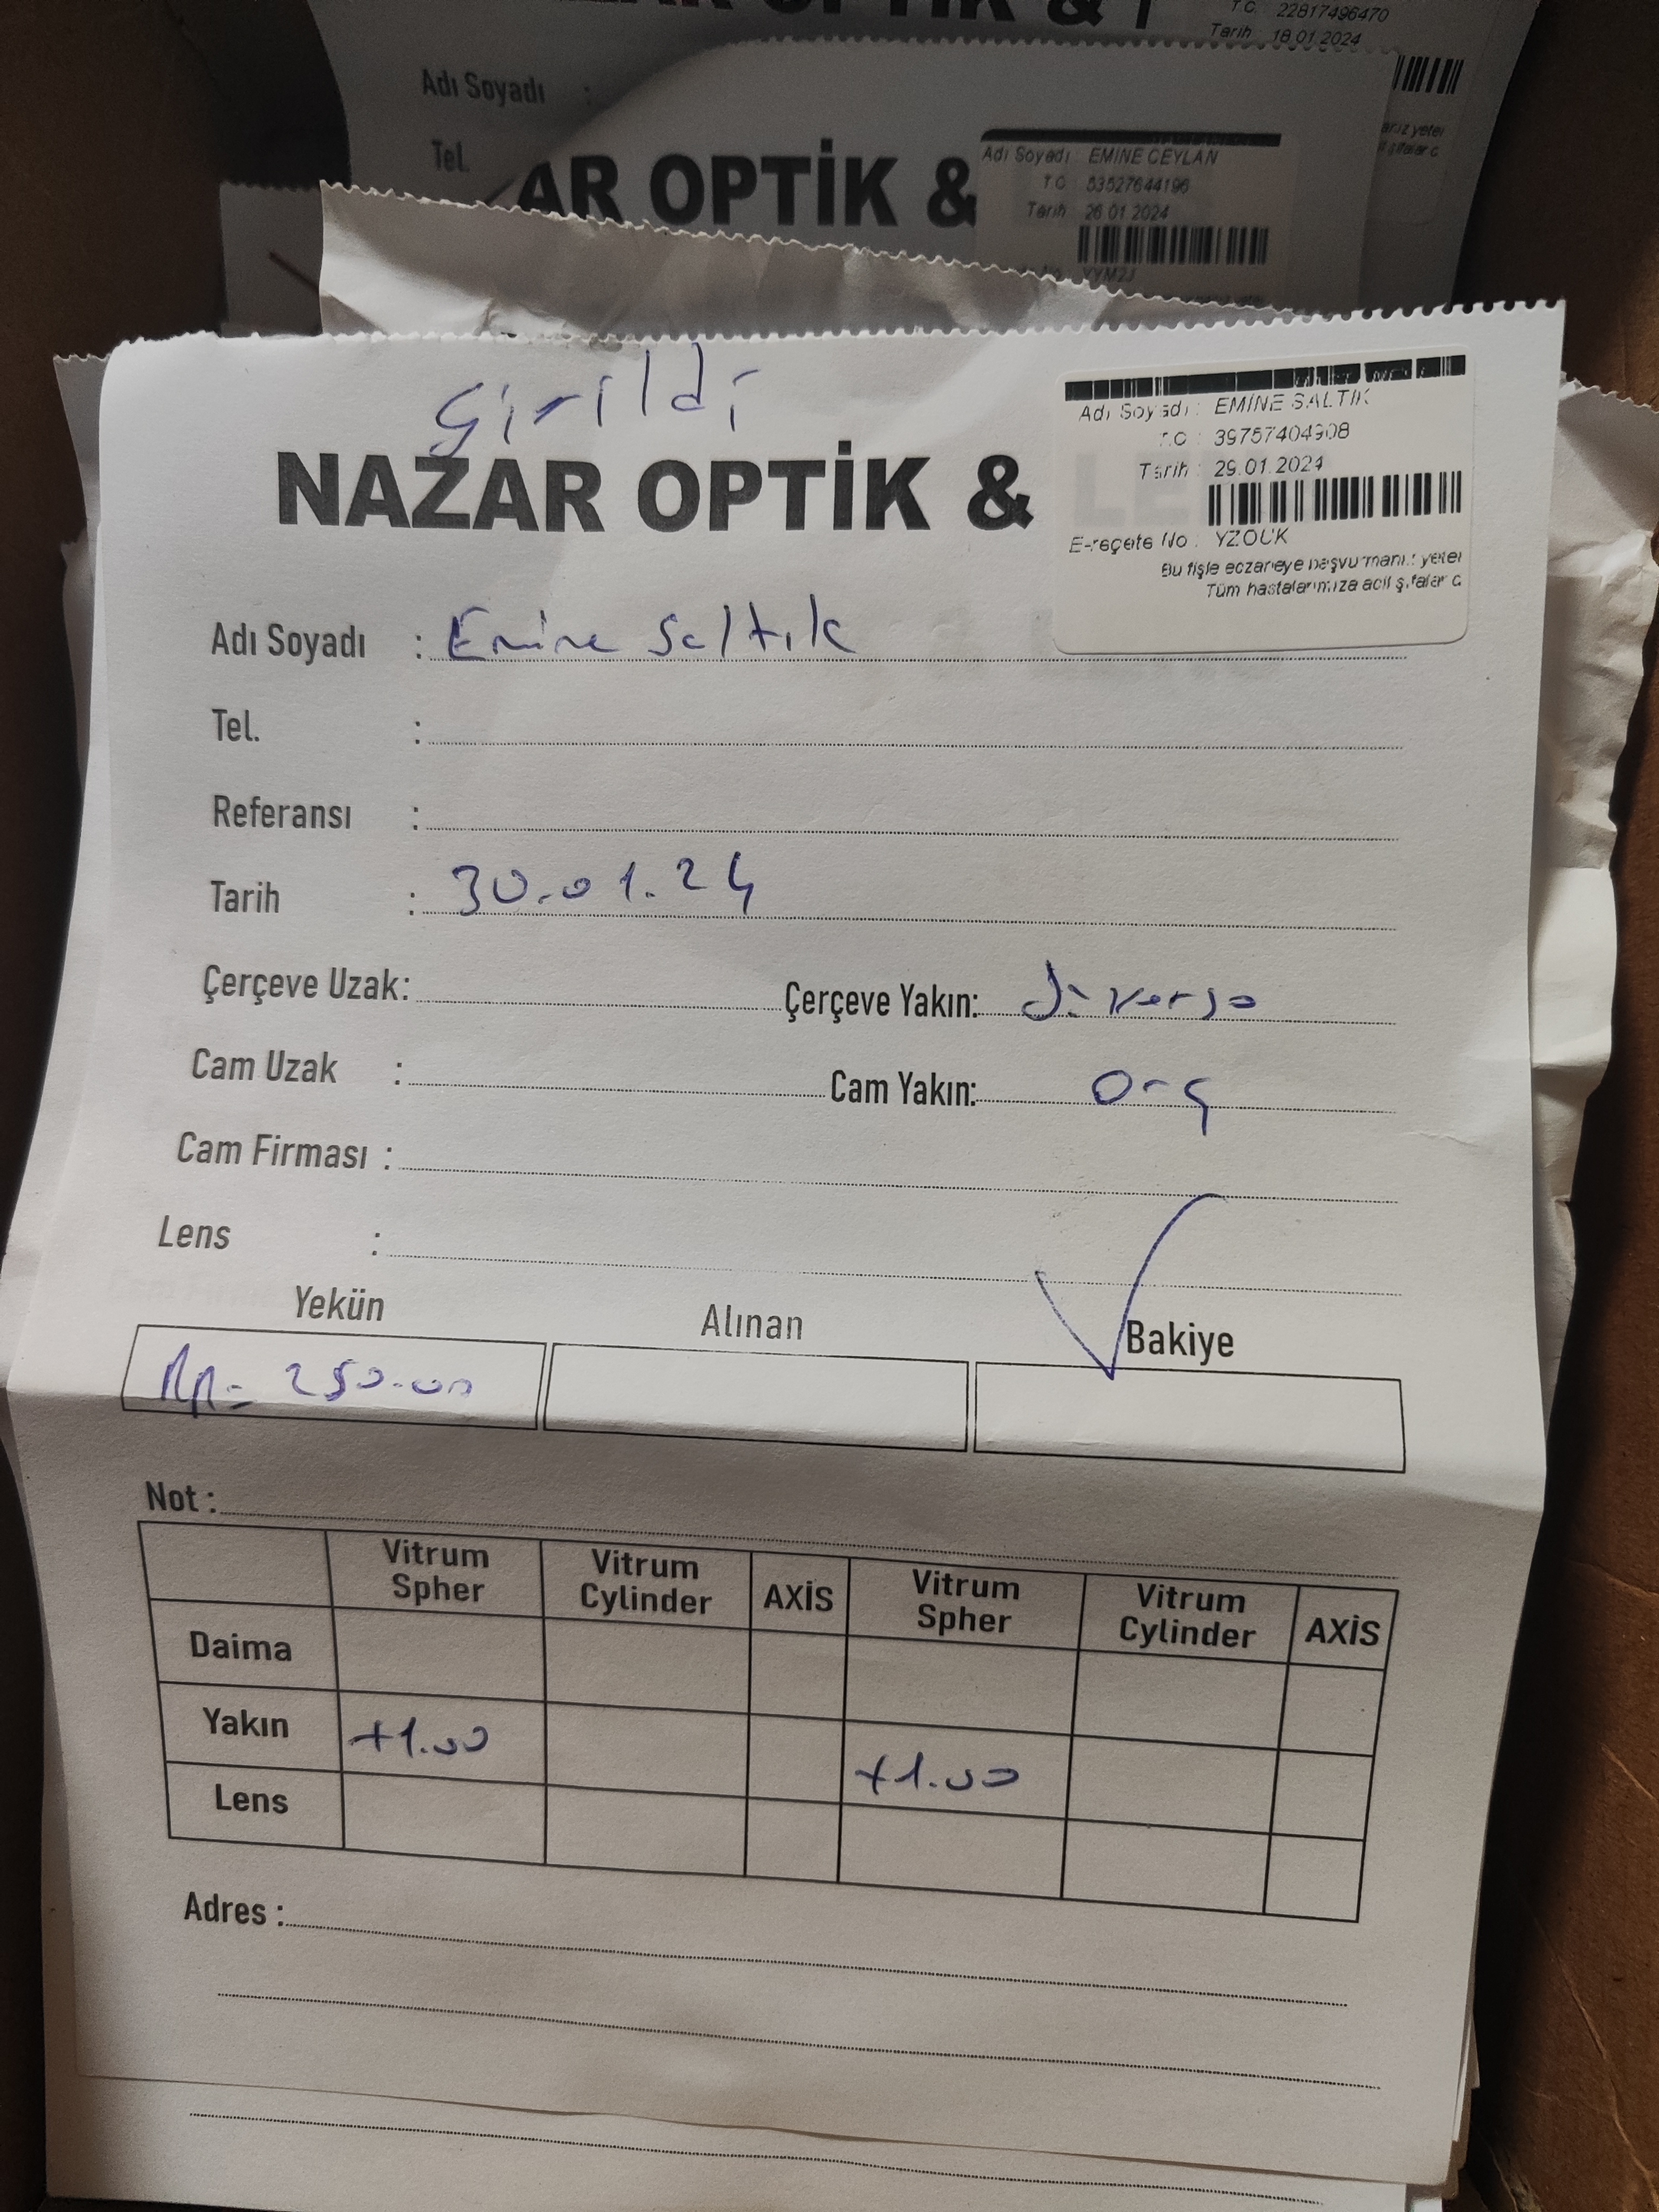 T.C. 22817496470
Tarih 18.01.2024
Adı Soyadı :
Tel.
AR OPTİK &
Adı Soyadı : EMİNE CEYLAN
T.C. 53527644196
Tarih : 26.01.2024
YYM2J
Girildi
NAZAR OPTİK &
Adı Soyadı : EMİNE SALTIK
T.C. : 39757404908
Tarih : 29.01.2024
E-reçete No :
Bu fişle eczaneye başvurmanız yeter
Tüm hastalarımıza acil şifalar d
Adı Soyadı : Emine Saltık
Tel. :
Referansı :
Tarih : 30.01.24
Çerçeve Uzak: Çerçeve Yakın: diverso
Cam Uzak : Cam Yakın: Org
Cam Firması :
Lens :
Yekün Alınan Bakiye
250.00
Not :
Vitrum Spher Vitrum Cylinder AXİS Vitrum Spher Vitrum Cylinder AXİS
Daima
Yakın +1.00 +1.00
Lens
Adres :